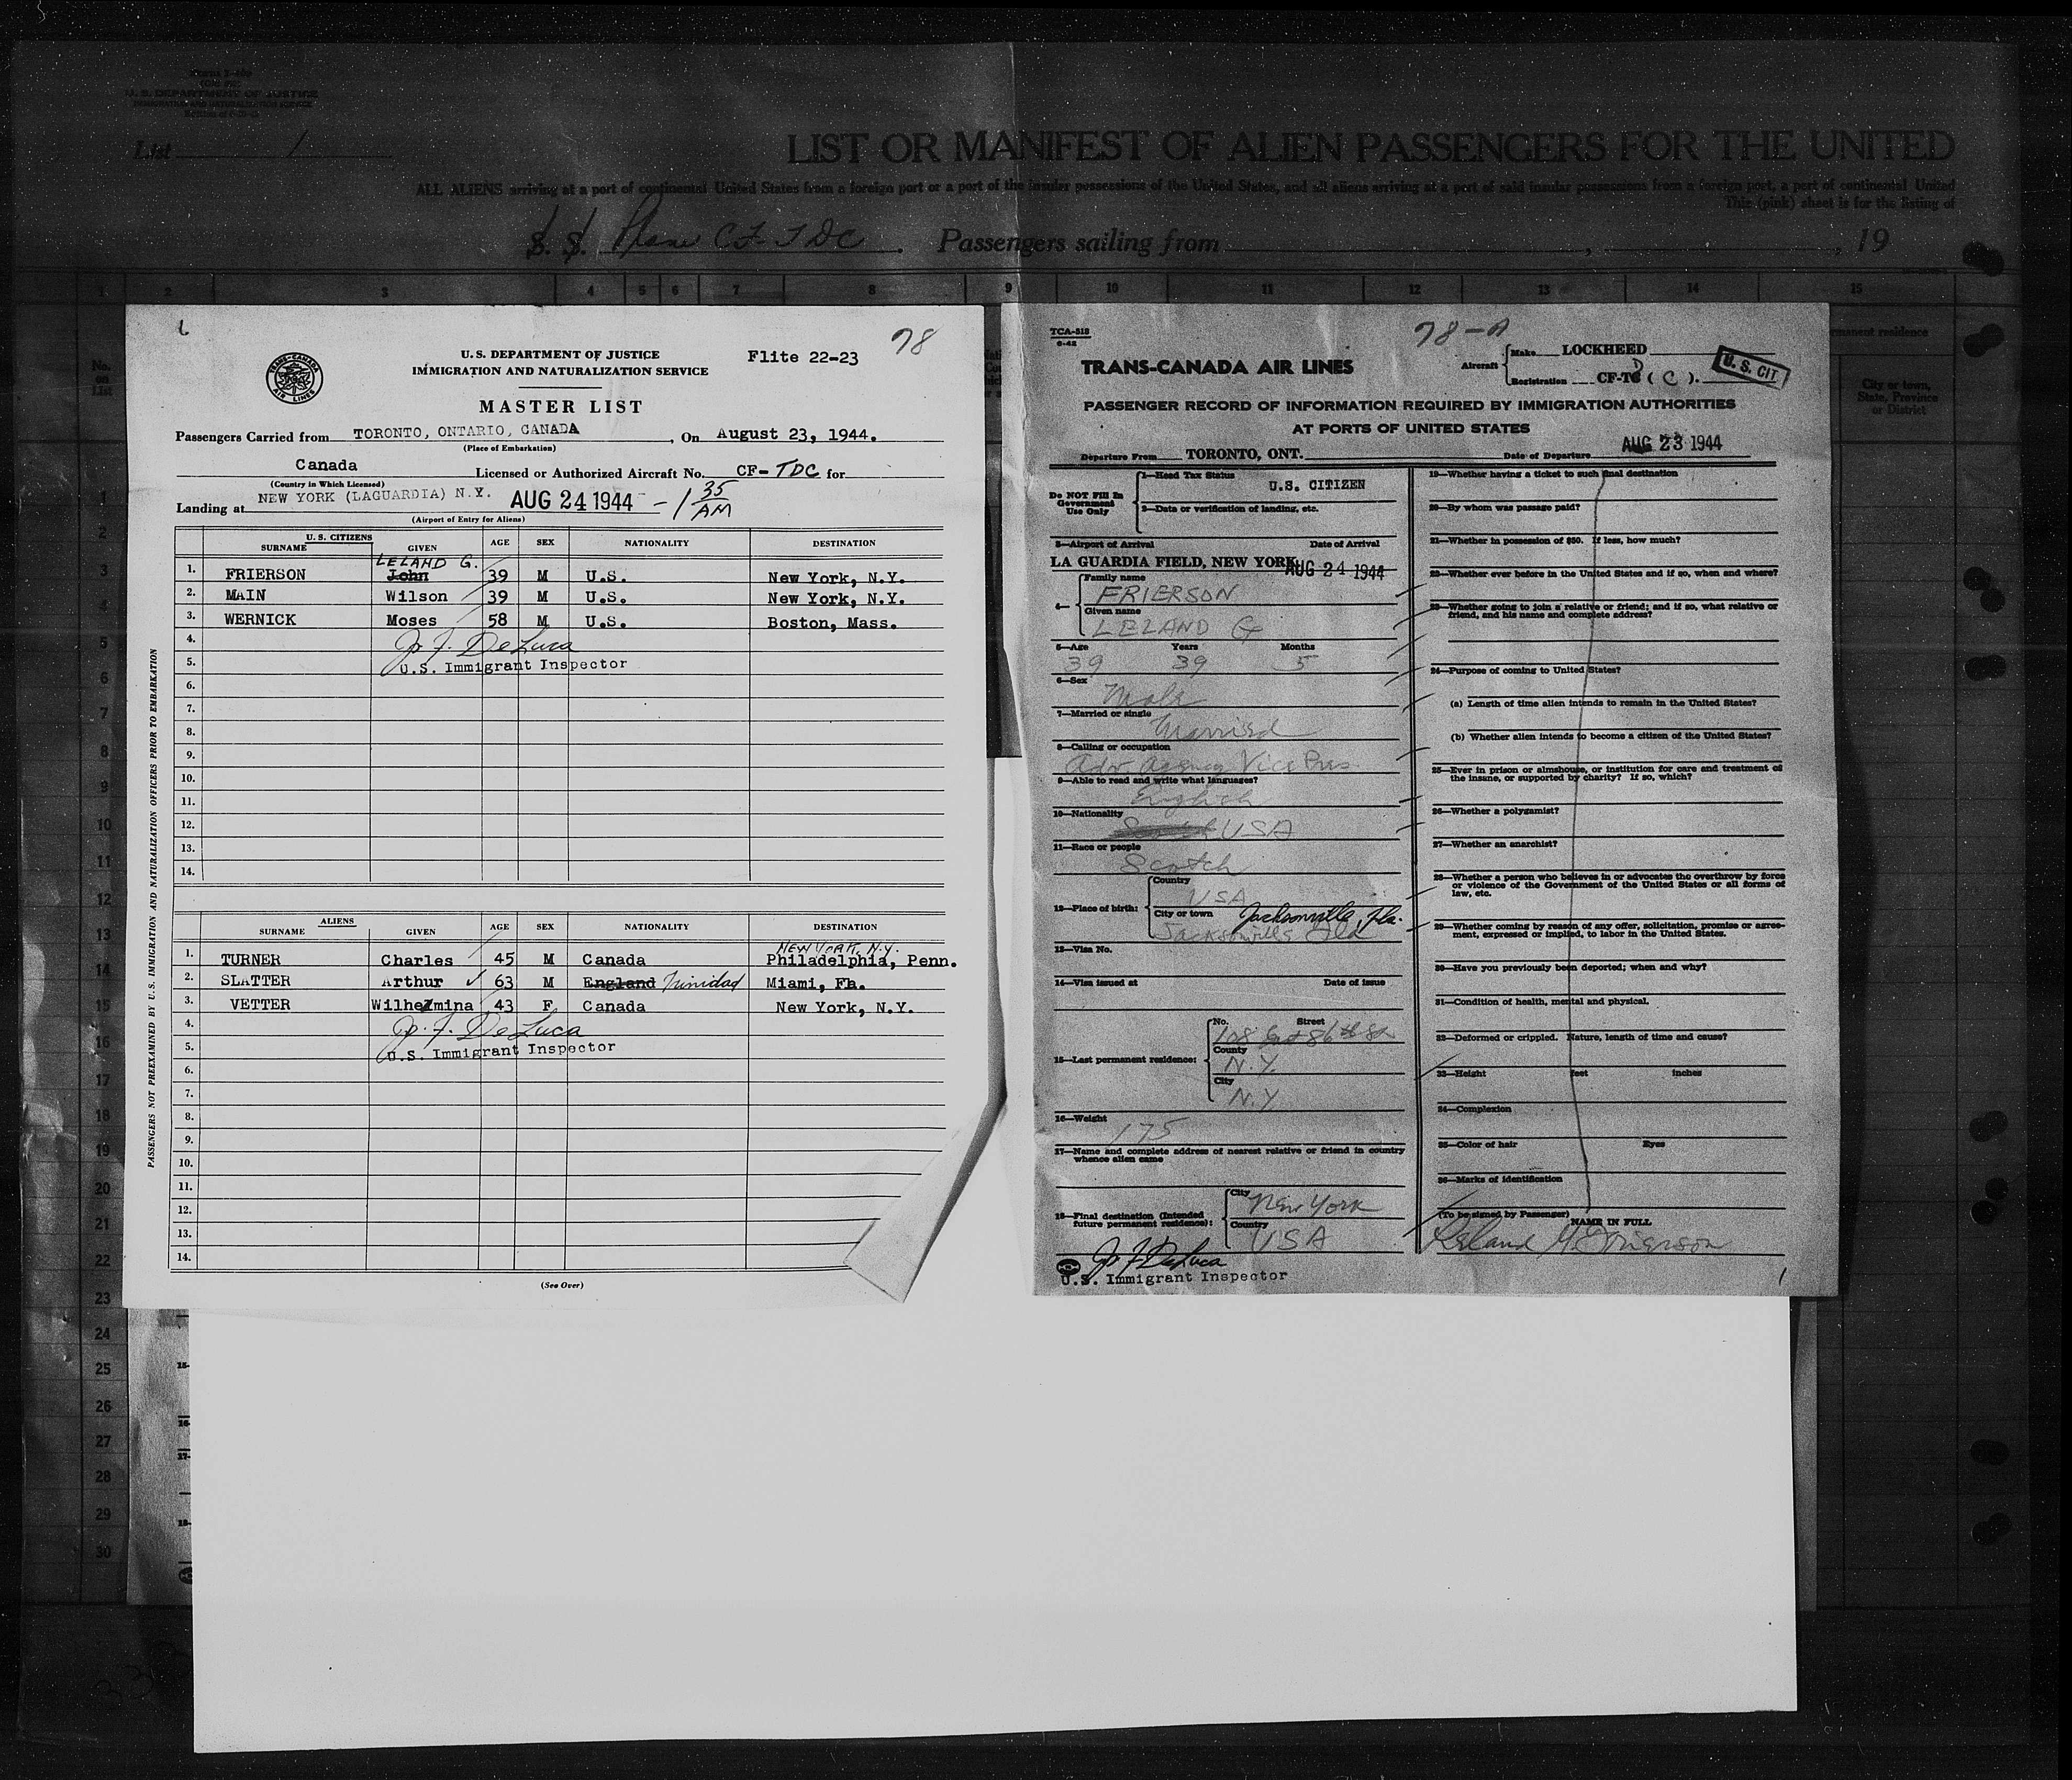 U. S. DEPARTMENT OF JUSTICE
IMMIGRATION AND NATURALIZATION SERVICE
List 1
LIST OR MANIFEST OF ALIEN PASSENGERS FOR THE UNITED
ALL ALIENS arriving at a port of continental United States from a foreign port or a port of the insular possessions of the United States, and all aliens arriving at a port of said insular possessions from a foreign port, a port of continental United
This (pink) sheet is for the listing of
S. S. Plane CF-TDC . Passengers sailing from , , 19
1 2 3 4 5 6 7 8 9 10 11 12 13 14 15
No. on List
permanent residence
City or town, State, Province or District
78
TRANS-CANADA AIR LINES
U.S. DEPARTMENT OF JUSTICE
IMMIGRATION AND NATURALIZATION SERVICE
Flite 22-23
MASTER LIST
Passengers Carried from TORONTO, ONTARIO, CANADA , On August 23, 1944.
(Place of Embarkation)
Canada Licensed or Authorized Aircraft No. CF-TDC for
(Country in Which Licensed)
Landing at NEW YORK (LAGUARDIA) N.Y. AUG 24 1944 - 1 35 AM
(Airport of Entry for Aliens)
U. S. CITIZENS
SURNAME GIVEN AGE SEX NATIONALITY DESTINATION
LELAND G.
1. FRIERSON John 39 M U.S. New York, N.Y.
2. MAIN Wilson 39 M U.S. New York, N.Y.
3. WERNICK Moses 58 M U.S. Boston, Mass.
4. J. F. DeLuca
5. U.S. Immigrant Inspector
6.
7.
8.
9.
10.
11.
12.
13.
14.
ALIENS
SURNAME GIVEN AGE SEX NATIONALITY DESTINATION
NEW YORK, N.Y.
1. TURNER Charles 45 M Canada Philadelphia, Penn.
2. SLATTER Arthur 63 M England Trinidad Miami, Fla.
3. VETTER Wilhelmina 43 F. Canada New York, N.Y.
4. J. F. DeLuca
5. U.S. Immigrant Inspector
6.
7.
8.
9.
10.
11.
12.
13.
14.
(See Over)
PASSENGERS NOT PREEXAMINED BY U.S. IMMIGRATION AND NATURALIZATION OFFICERS PRIOR TO EMBARKATION
TCA-518
6-42
78-A
TRANS-CANADA AIR LINES
Aircraft Make LOCKHEED
Registration CF-TC D ( C ).
U. S. CIT
PASSENGER RECORD OF INFORMATION REQUIRED BY IMMIGRATION AUTHORITIES
AT PORTS OF UNITED STATES
Departure From TORONTO, ONT. Date of Departure AUG 23 1944
Do NOT Fill In Government Use Only
1—Head Tax Status U.S. CITIZEN
2—Date or verification of landing, etc.
3—Airport of Arrival Date of Arrival
LA GUARDIA FIELD, NEW YORK AUG 24 1944
4— Family name
FRIERSON
Given name
LELAND G
5—Age Years Months
39 39 5
6—Sex
Male
7—Married or single
Married
8—Calling or occupation
Adv Agency Vice Pres
9—Able to read and write what languages?
English
10—Nationality
Scotch USA
11—Race or people
Scotch
12—Place of birth: Country
USA
City or town Jacksonville, Fla.
Jacksonville Fla
13—Visa No.
14—Visa issued at Date of issue
15—Last permanent residence: No. Street
108 East 86th St
County
N.Y.
City
N.Y.
16—Weight
175
17—Name and complete address of nearest relative or friend in country
whence alien came
18—Final destination (Intended future permanent residence): City New York
Country
USA
J. F. DeLuca
U.S. Immigrant Inspector
19—Whether having a ticket to such final destination
20—By whom was passage paid?
21—Whether in possession of $50. If less, how much?
22—Whether ever before in the United States and if so, when and where?
23—Whether going to join a relative or friend; and if so, what relative or
friend, and his name and complete address?
24—Purpose of coming to United States?
(a) Length of time alien intends to remain in the United States?
(b) Whether alien intends to become a citizen of the United States?
25—Ever in prison or almshouse, or institution for care and treatment of
the insane, or supported by charity? If so, which?
26—Whether a polygamist?
27—Whether an anarchist?
28—Whether a person who believes in or advocates the overthrow by force
or violence of the Government of the United States or all forms of
law, etc.
29—Whether coming by reason of any offer, solicitation, promise or agree-
ment, expressed or implied, to labor in the United States.
30—Have you previously been deported; when and why?
31—Condition of health, mental and physical.
32—Deformed or crippled. Nature, length of time and cause?
33—Height feet inches
34—Complexion
35—Color of hair Eyes
36—Marks of identification
(To be signed by Passenger) NAME IN FULL
Leland G Frierson
1
1
2
3
4
5
6
7
8
9
10
11
12
13
14
15
16
17
18
19
20
21
22
23
24
25
26
27
28
29
30
15-
16-
17-
18-